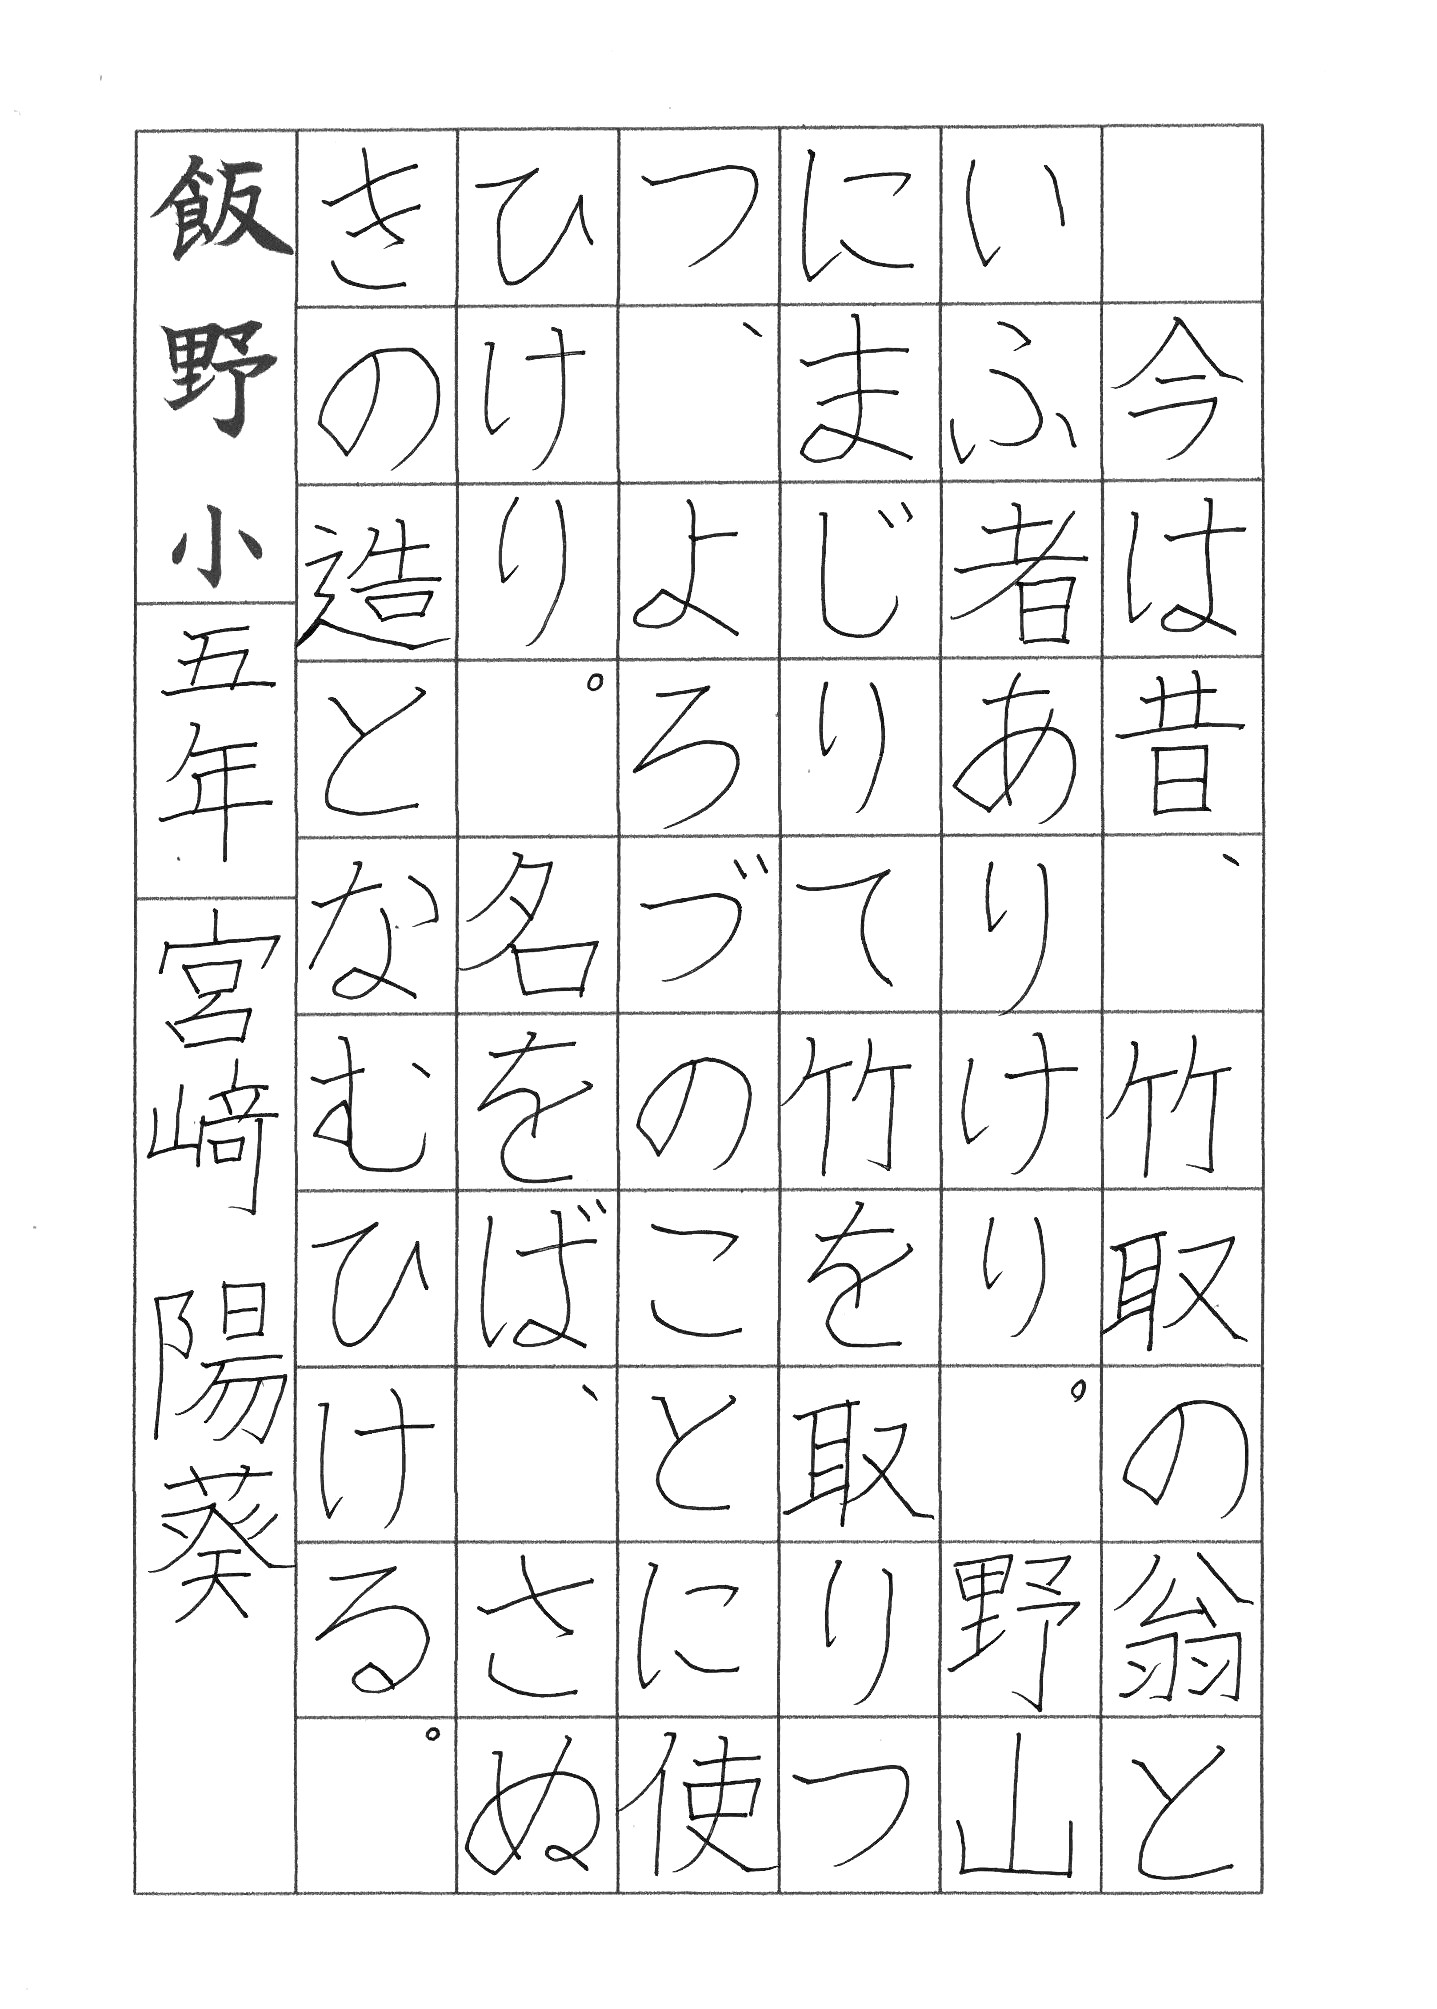 今は昔、竹取の翁と
いふ者ありけり。野山
にまじりて竹を取りつ
つ、よろづのことに使
ひけり。名をば、さぬ
きの造となむひける。
飯野小 五年 宮崎 陽葵